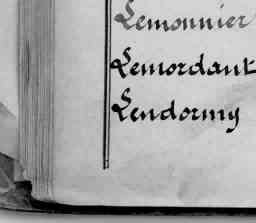 Lemonnier
Lemordant
Lendormy